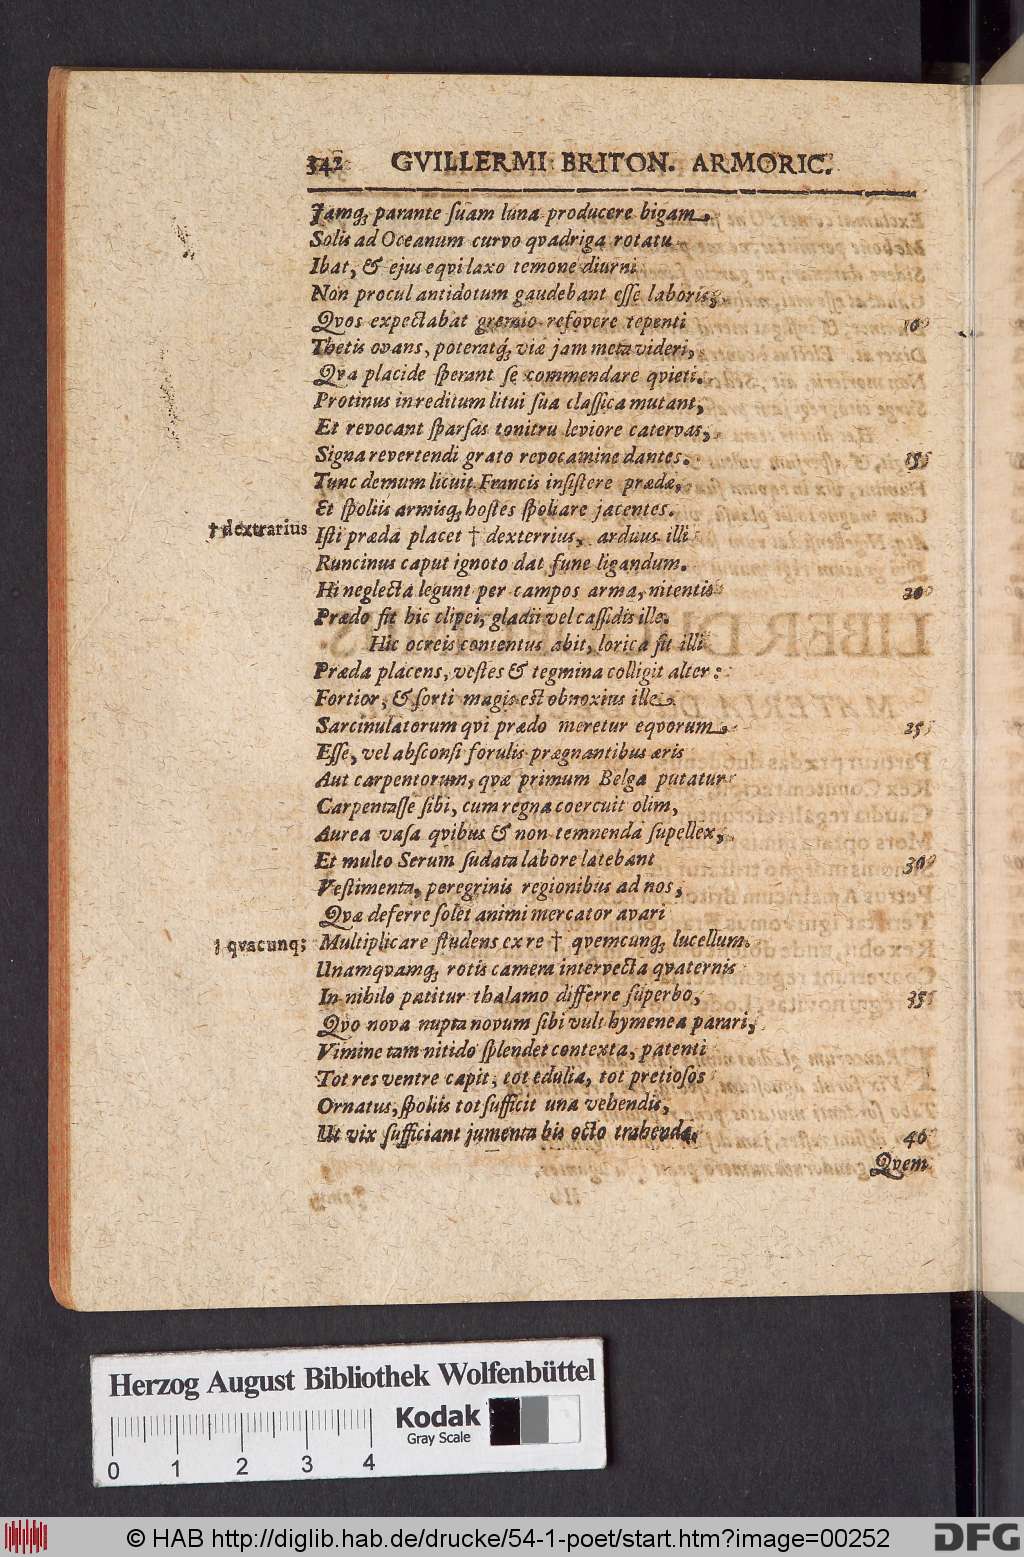 342 GVILLERMI BRITON. ARMORIC.
Jamq; parante ſuam luna producere bigam.
Solis ad Oceanum curvo qvadriga rotatu
Ibat, & ejus eqvi laxo temone diurni
Non procul antidotum gaudebant eſſe laboris;
Qvos expectabat gremio refovere tepenti 10
Thetis ovans, poteratq́; viæ jam meta videri,
Qva placide ſperant ſe commendare qvieti.
Protinus in reditum litui ſua claſſica mutant,
Et revocant ſparſas tonitru leviore catervas,
Signa revertendi grato revocamine dantes. 15
Tunc demum licuit Francis inſiſtere prædæ,
Et ſpoliis armisq; hoſtes ſpoliare jacentes.
† dextrarius Iſti præda placet † dexterrius, arduus illi
Runcinus caput ignoto dat fune ligandum.
Hi neglecta legunt per campos arma, nitentis 20
Prædo fit hic clipei, gladii vel caſſidis ille.
Hic ocreis contentus abit, lorica fit illi
Præda placens, veſtes & tegmina colligit alter:
Fortior, & ſorti magis eſt obnoxius ille
Sarcinulatorum qvi prædo meretur eqvorum 25
Eſſe, vel abſconſi forulis prægnantibus æris
Aut carpentorum, qvæ primum Belga putatur
Carpentaſſe ſibi, cum regna coercuit olim,
Aurea vaſa qvibus & non temnenda ſupellex,
Et multo Serum ſudata labore latebant 30
Veſtimenta, peregrinis regionibus ad nos,
Qvæ deferre ſolet animi mercator avari
† qvacunq; Multiplicare ſtudens ex re † qvemcunq; lucellum.
Unamqvamq; rotis camera intervecta qvaternis
In nihilo patitur thalamo differre ſuperbo, 35
Qvo nova nupta novum ſibi vult hymenea parari,
Vimine tam nitido ſplendet contexta, patenti
Tot res ventre capit, tot edulia, tot pretioſos
Ornatus, ſpoliis tot ſufficit una vehendis,
Ut vix ſufficiant jumenta bis octo trahenda, 40
Qvem
Herzog August Bibliothek Wolfenbüttel
Kodak
Gray Scale
0 1 2 3 4
© HAB http://diglib.hab.de/drucke/54-1-poet/start.htm?image=00252
DFG